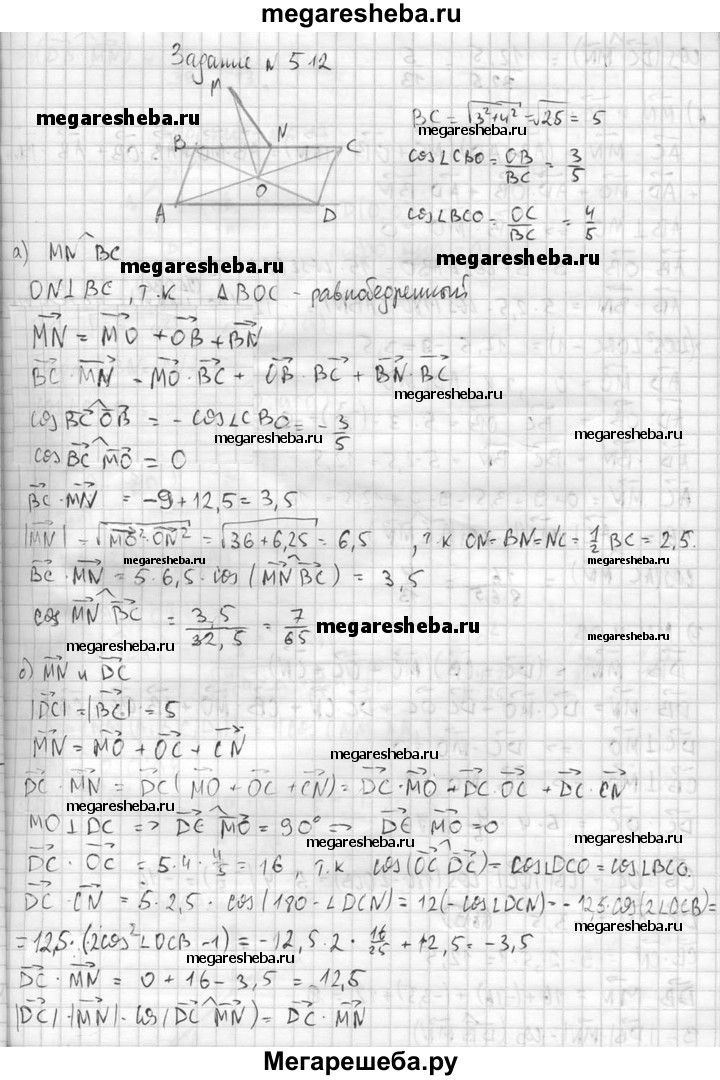 megaresheba.ru
Задание № 512
M
megaresheba.ru
B N C
O
A D
BC = √3²+4² = √25 = 5
megaresheba.ru
cos∠CBO = OB/BC = 3/5
cos∠BCO = OC/BC = 4/5
а) MN^BC
megaresheba.ru
megaresheba.ru
ON⊥BC, т.к ΔBOC - равнобедренный
MN = MO + OB + BN
BC · MN = MO · BC + OB · BC + BN · BC
megaresheba.ru
cos BC^OB = - cos∠CBO = - 3/5
megaresheba.ru
megaresheba.ru
cos BC^MO = 0
BC · MN = -9 + 12,5 = 3,5
megaresheba.ru
megaresheba.ru
|MN| = √MO²·ON² = √36 + 6,25 = 6,5 , т.к ON = BN = NC = 1/2 BC = 2,5.
megaresheba.ru
BC · MN = 5 · 6,5 · cos (MN^BC) = 3,5
cos MN^BC = 3,5/32,5 = 7/65
megaresheba.ru
megaresheba.ru
б) MN и DC
|DC| = |BC| = 5
MN = MO + OC + CN
megaresheba.ru
DC · MN = DC (MO + OC + CN) = DC · MO + DC · OC + DC · CN
megaresheba.ru
MO⊥DC => DC^MO = 90° => DC MO = 0
megaresheba.ru
DC · OC = 5·4·4/5 = 16, т.к cos(OC^DC) = cos∠DCO = cos∠BCO.
DC · CN = 5·2,5 · cos(180 - ∠DCN) = 12(-cos∠DCN) = -12,5·cos(2∠OCB) =
= -12,5·(2cos²∠OCB -1) = -12,5·2·16/25 + 12,5 = -3,5
megaresheba.ru
DC · MN = 0 + 16 - 3,5 = 12,5
megaresheba.ru
|DC|·|MN|·cos(DC^MN) = DC · MN
Мегарешеба.ру